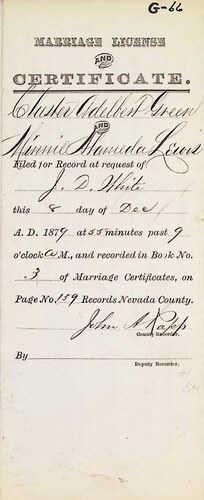 G-66
MARRIAGE LICENSE
AND
CERTIFICATE.
Cluster Adelbert Green
AND
Minnie Alameda Lewis
Filed for Record at request of
J. D. White
this 8 day of Dec
A. D. 1879 at 55 minutes past 9
o'clock A M., and recorded in Book No.
3 of Marriage Certificates, on
Page No. 159 Records Nevada County.
John A Rapp
County Recorder.
By
Deputy Recorder.